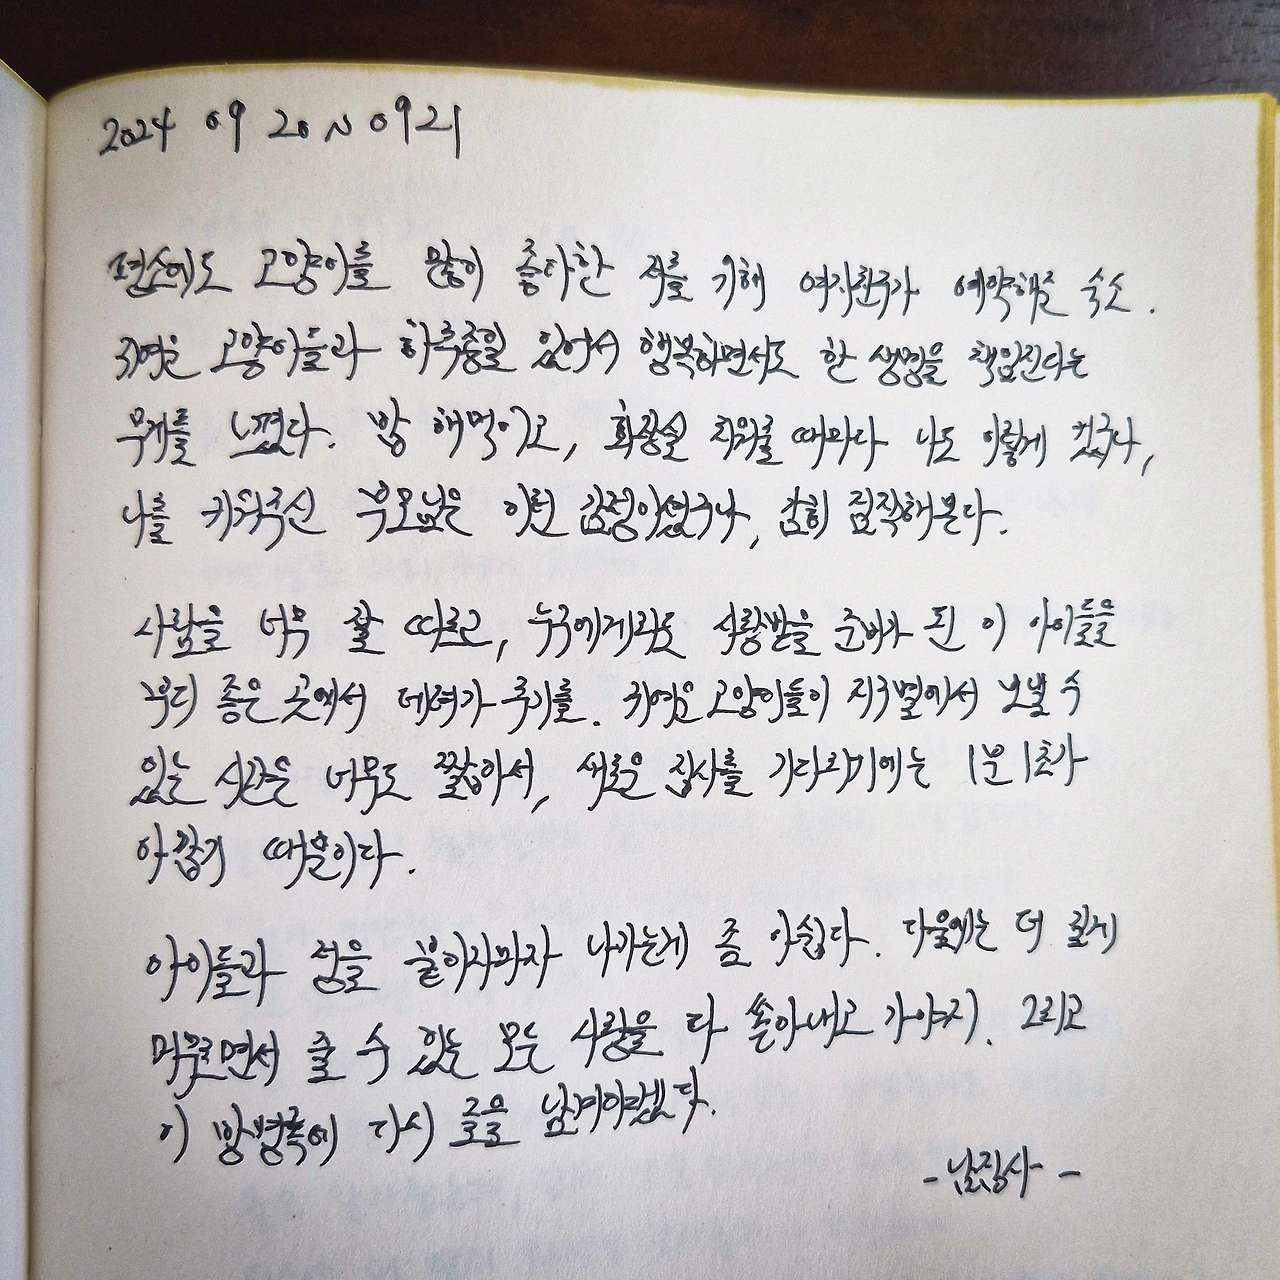 2024 09 20 ~ 09 21
평소에도 고양이를 많이 좋아한 저를 위해 여자친구가 예약해준 숙소.
귀여운 고양이들과 하루종일 있어서 행복하면서도 한 생명을 책임진다는
무게를 느꼈다. 밥 해먹이고, 화장실 치워줄 때마다 나도 이렇게 컸구나,
나를 키워주신 부모님은 이런 감정이셨구나, 감히 짐작해본다.
사람을 너무 잘 따르고, 누구에게라도 사랑받을 준비가 된 이 아이들을
부디 좋은 곳에서 데려가 주기를. 귀여운 고양이들이 지구별에서 보낼 수
있는 시간은 너무도 짧아서, 새로운 집사를 기다리기에는 1분 1초가
아깝기 때문이다.
아이들과 정을 붙이자마자 나가는게 좀 아쉽다. 다음에는 더 길게
머물면서 줄 수 있는 모든 사랑을 다 쏟아내고 가야지. 그리고
이 방명록에 다시 글을 남겨야겠다.
- 남집사 -